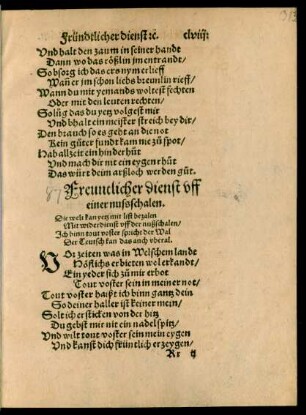 Fründtlicher dienst ꝛc. clviij:
Und halt den zaum in seiner handt
Dann wo das rößlin jm entrandt/
So bsorg ich das ers nym erlieff
Wañ er im schon liebs brentlin rieff/
Wann du mit yemands woltest fechten
Oder mit den leuten rechten/
So lůg das du yetz volgest mir
Und bhalt ein meister streich bey dir/
Den brauch so es gaht an die not
Kein gůter fundt kam me zů spot/
Hab allzeit ein hinderhůt
Und mach dir mit ein eygen růt
Das würt deim arßloch werden gůt.
Freuntlicher dienst vff
einer nussschalen.
Die welt kan yetz mit list bezalen
Mit widerdienst vff der nußschalen/
Ich binn tout voster spricht der Wal
Der Teutsch kan das auch überal.
Vor zeiten was in Welschem lande
Höflichs erbieten wol erkandt/
Ein yeder sich zů mir erbot
Tout voster sein in meiner not/
Tout voster haißt ich binn gantz dein
So deiner haller ist keiner mein/
Solt ich ersticken von der hitz
Du gebst mir nit ein nadelspitz/
Und wilt tout voster sein mein eygen
Und kanst dich früntlich erzeygen/
Rr ij